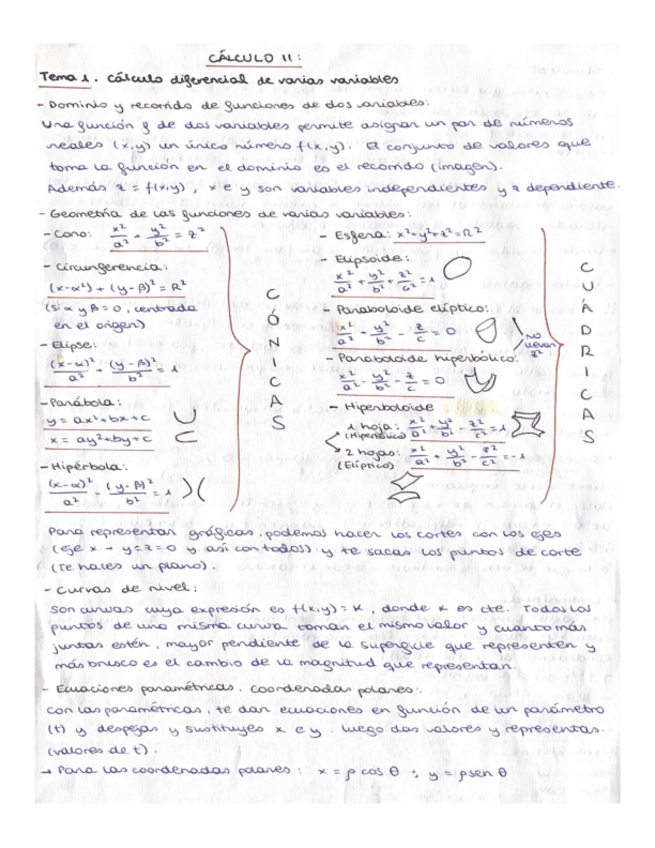 CÁLCULO II:
Tema 1. Cálculo diferencial de varias variables
- Dominio y recorrido de funciones de dos variables:
Una función f de dos variables permite asignar un par de números
reales (x,y) un único número f(x,y). El conjunto de valores que
toma la función en el dominio es el recorrido (imagen).
Además z = f(x,y), x e y son variables independientes y z dependiente.
- Geometría de las funciones de varias variables:
- Cono: x²/a² - y²/b² = z²
- Circunferencia:
(x-α²) + (y-β)² = R²
(si α y β = 0, centrada
en el origen)
- Elipse:
(x-α)²/a² - (y-β)²/b² = 1
- Parábola:
y = ax²+bx+c
x = ay²+by+c
- Hipérbola:
(x-α)²/a² - (y-β)²/b² = 1
CÓNICAS
- Esfera: x²+y²+z² = R²
- Elipsoide:
x²/a² + y²/b² + z²/c² = 1
- Paraboloide elíptico:
x²/a² - y²/b² - z/c = 0
- Paraboloide hiperbólico:
x²/a² - y²/b² - z/c = 0
no
llevan
z²
- Hiperboloide
1 hoja: x²/a² + y²/b² - z²/c² = 1
(Hiperbólico)
2 hojas: x²/a² + y²/b² - z²/c² = -1
(Elíptico)
CUÁDRICAS
Para representar gráficas, podemos hacer los cortes con los ejes
(eje x → y=z=0 y así con todos) y te sacas los puntos de corte
(Te haces un plano).
- Curvas de nivel:
Son curvas cuya expresión es f(x,y) = K, donde K es cte. Todos los
puntos de una misma curva toman el mismo valor y cuanto más
juntas estén, mayor pendiente de la superficie que representen y
más brusco es el cambio de la magnitud que representan.
- Ecuaciones paramétricas. Coordenadas polares:
Con las paramétricas, te dan ecuaciones en función de un parámetro
(t) y despejas y sustituyes x e y. Luego das valores y representas.
(valores de t).
→ Para las coordenadas polares: x = ρ cos θ ; y = ρ sen θ